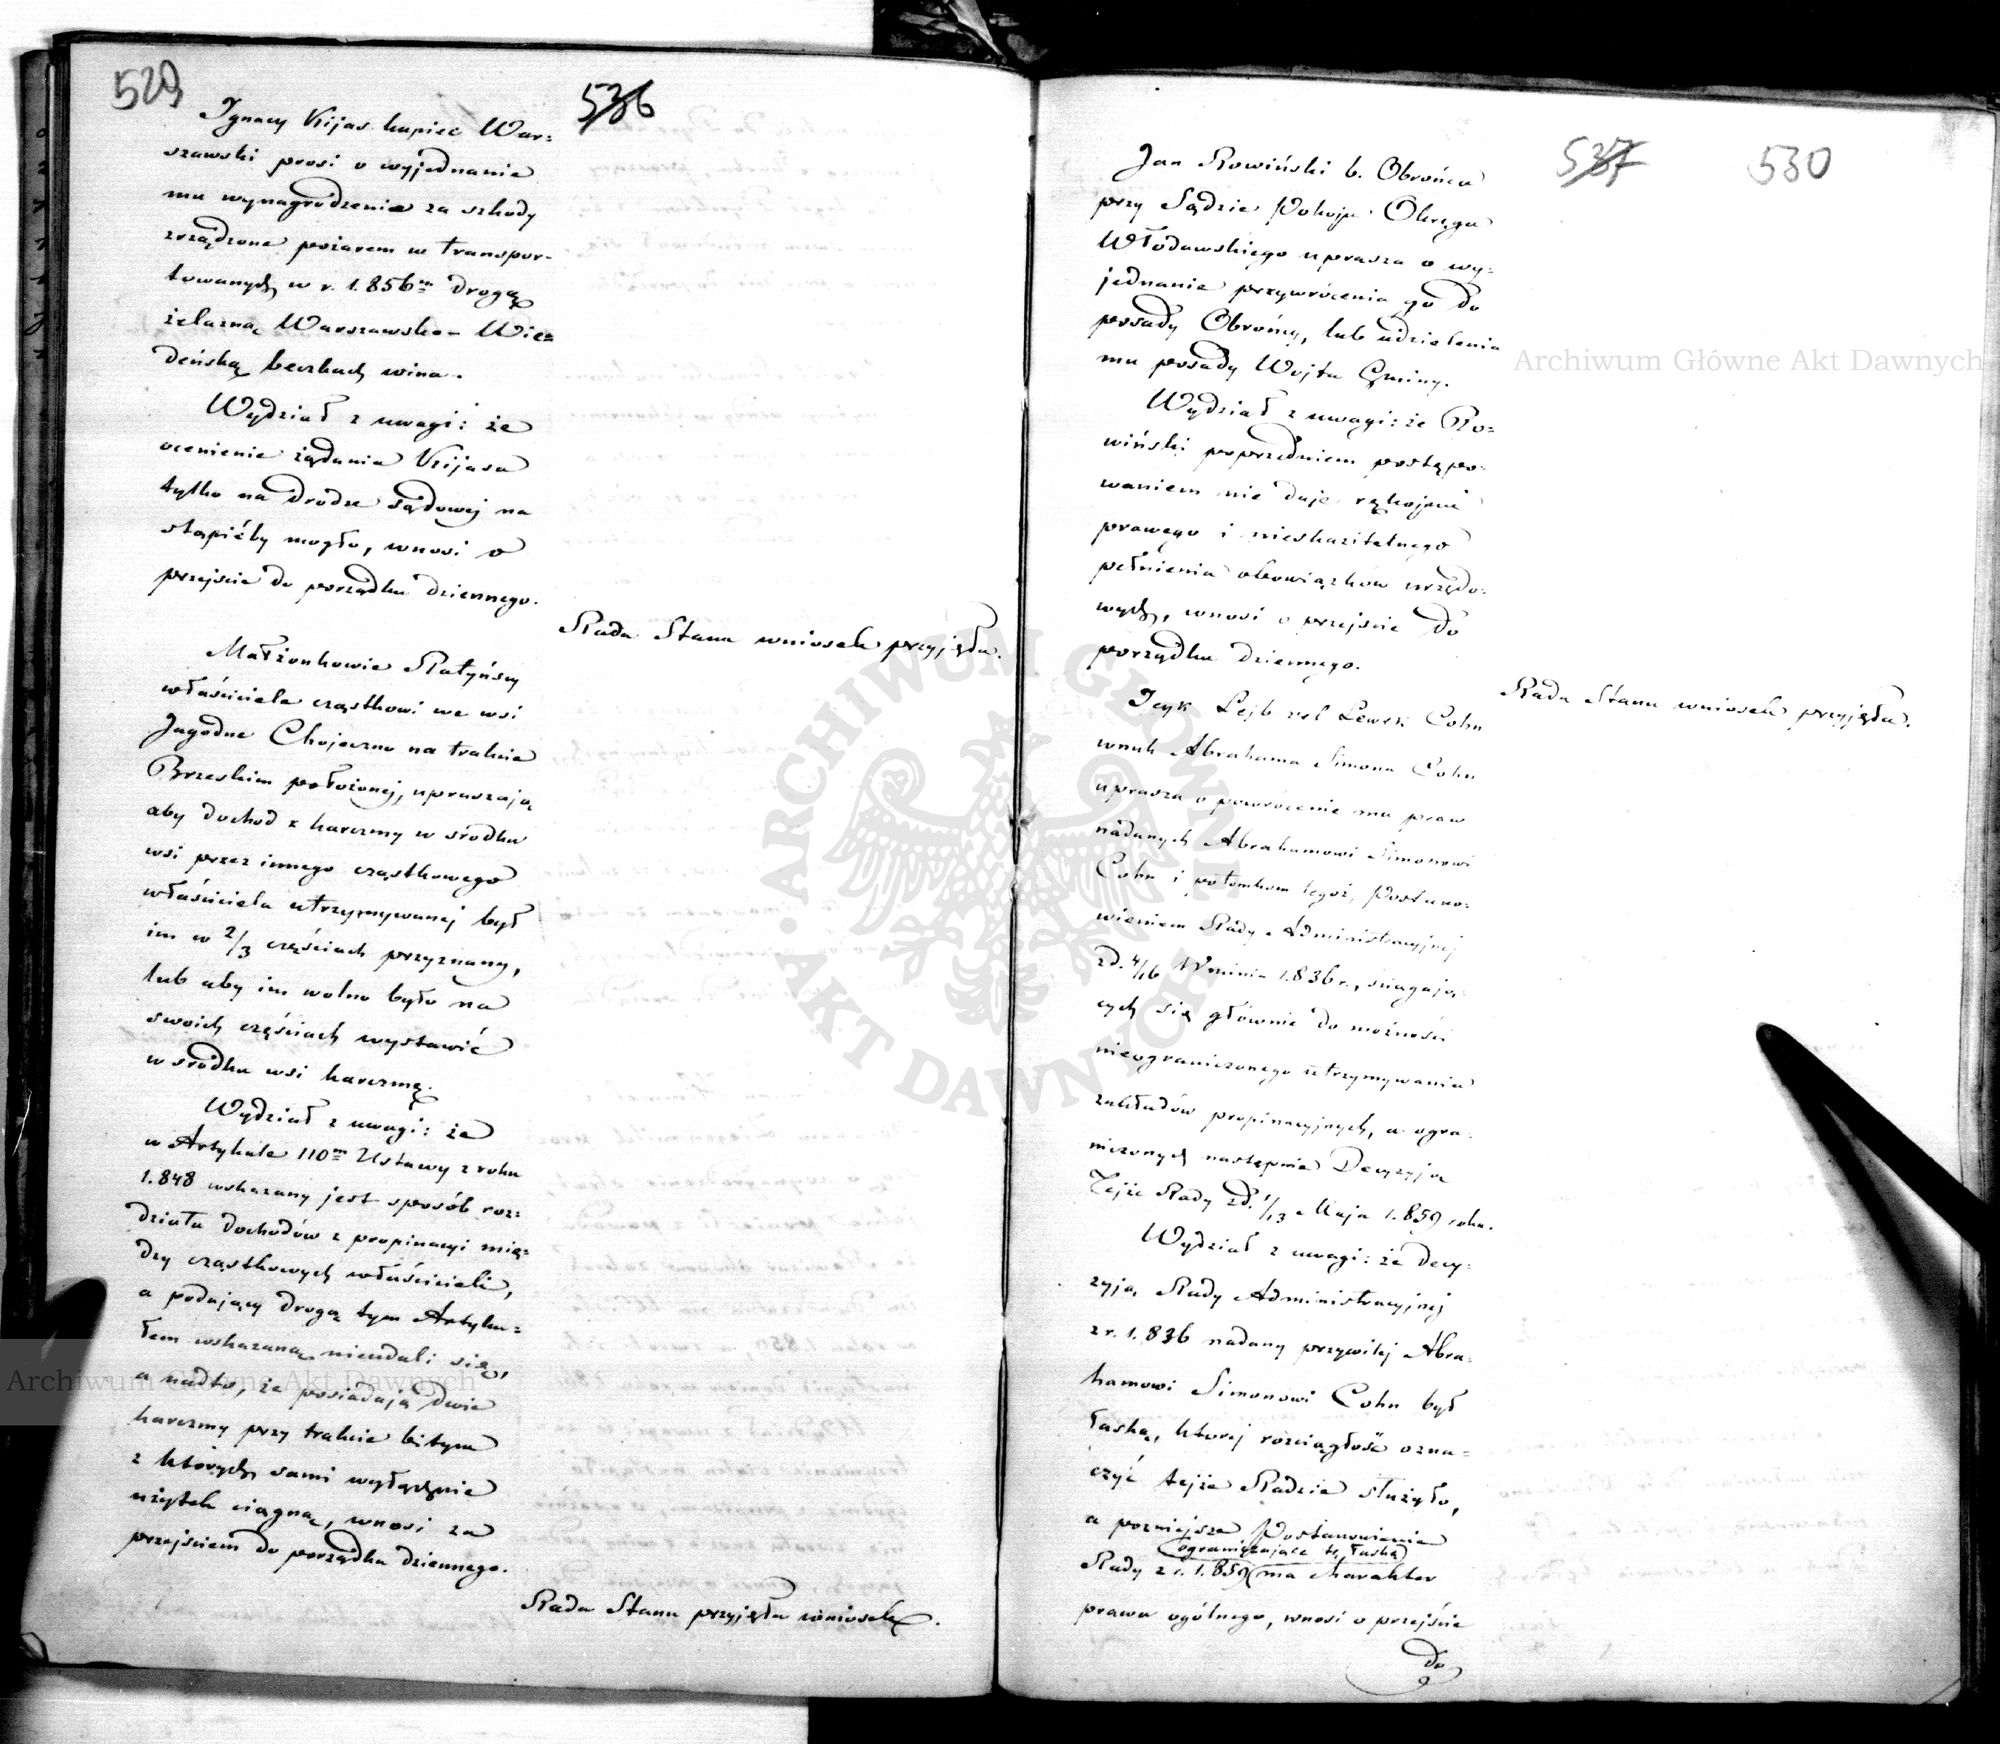 529
536
Ignacy Kijas kupiec War=
szawski prosi o wyjednanie
mu wynagrodzenia za szkody
zrządzone pożarem w transpor-
towanych w r. 1.856m drogą
żelazną Warszawsko-Wie=
deńską beczkach wina.
Wydział z uwagi: że
ocenienie żądania Kijasa
tylko na drodze sądowej na
stąpićby mogło, wnosi o
przejście do porządku dziennego.
Rada Stanu wniosek przyjęła.
Małżonkowie Ratyńscy
właściciele cząstkowi we wsi
Jagodne Chojeczno na trakcie
Brzeskim położonej, upraszają
aby dochod z karczmy w srodku
wsi przez innego cząstkowego
właściciela utrzymywanej był
im w 2/3 częściach przyznany,
lub aby im wolno było na
swoich częściach wystawić
w srodku wsi karczmę.
Wydział z uwagi: że
w Artykule 110m Ustawy z roku
1.848 wskazany jest sposób roz=
działu dochodów z propinacyi mię=
dzy cząstkowych właścicieli,
a podający drogą tym Artyku=
łem wskazaną nieudali się,
a nadto, że posiadają dwie
karczmy przy trakcie bitym
z których sami wyłącznie
użytek ciągną, wnosi za
przejściem do porządku dziennego.
Rada Stanu przyjęła wniosek.
537
530
Jan Rowiński b. Obrońca
przy Sądzie Pokoju Okręgu
Włodawskiego uprasza o wy=
jednanie przywrócenia go do
posady Obrońcy, lub udzielenia
mu posady Wójta Gminy.
Wydział z uwagi: że Ro=
wiński poprzedniem postępo=
waniem nie daje rękojmi
prawego i nieskazitelnego
pełnienia obowiązków urzędo=
wych, wnosi o przejście do
porządku dziennego.
Rada Stanu wniosek przyjęła.
Icyk Lejb vel Lewek Cohn
wnuk Abrahama Simona Cohn
uprasza o powrócenie mu praw
nadanych Abrahamowi Simonowi
Cohn i potomkom tegoż, Postano=
wieniem Rady Administracyjnej
zd. 4/16 1.836 r., sciągają=
cych się głównie do możności
nieograniczonego utrzymywania
zakładów propinacyjnych, a ogra=
niczonych następnie Decyzyją
Tejże Rady zd. 1/13 Maja 1.859 roku.
Wydział z uwagi: że decy=
zyją Rady Administracyjnej
z r. 1.836 nadany przywilej Abra=
hamowi Simonowi Cohn był
łaską, ktorej rozciągłość ozna=
czyć tejże Radzie służyło,
a pozniejsze Postanowienie
ograniczające tę łaskę
Rady z r. 1.859 ma charakter
prawa ogólnego, wnosi o przejście
do
Archiwum Główne Akt Dawnych
Archiwum Główne Akt Dawnych
ARCHIWUM GŁÓWNE AKT DAWNYCH